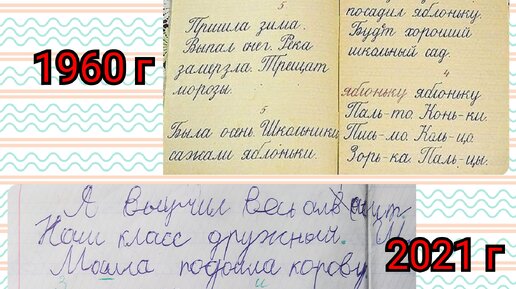 1960 г
5
Пришла зима.
Выпал снег. Река
замерзла. Трещат
морозы.
5
Была осень. Школьники
сажали яблоньки.
посадил яблоньку.
Будет хороший
школьный сад.
4
яблоньку яблоньку
Паль-то. Конь-ки.
Пись-мо. Коль-цо.
Зорь-ка. Паль-цы.
Я выучил весь
Наш класс дружный.
подоила корову
2021 г